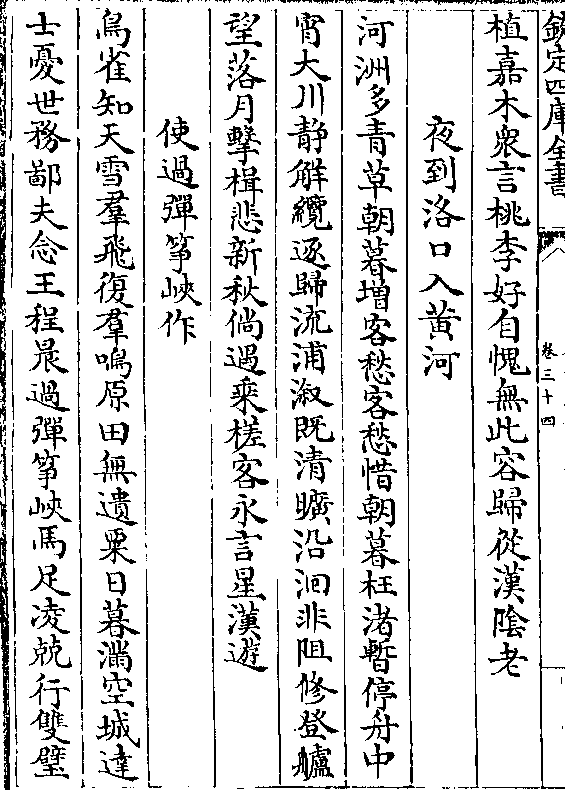 欽定四庫全書
卷三十四
植嘉木衆言桃李好自愧無此容歸從漢陰老
夜到洛口入黄河
河洲多青草朝暮增客愁客愁惜朝暮枉渚暫停舟中
宵大川静解纜逐歸流浦溆既清曠沿洄非阻修登艫
望落月擊楫悲新秋倘遇乘槎客永言星漢遊
使過彈箏峽作
鳥雀知天雪羣飛復羣鳴原田無遺粟日暮滿空城達
士憂世務鄙夫念王程晨過彈箏峽馬足凌兢行雙璧